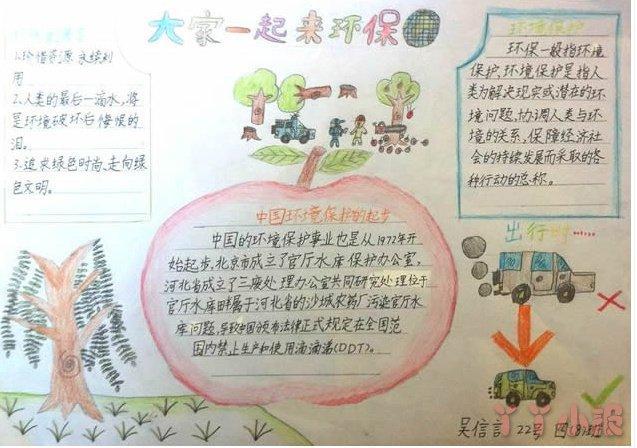 大家一起来环保
1.珍惜资源 永续利
用
2.人类的最后一滴水,将
是环境破坏后悔恨的
泪。
3.追求绿色时尚,走向绿
色文明。
环境保护
环保一般指环境
保护,环境保护是指人
类为解决现实或潜在的环
境问题,协调人类与环
境的关系,保障经济社
会的持续发展而采取的各
种行动的总称。
中国环境保护的起步
中国的环境保护事业也是从1972年开
始起步,北京市成立了官厅水库保护办公室,
河北省成立了三废处理办公室共同研究处理位于
官厅水库畔属于河北省的沙城农药厂污染官厅水
库问题,导致中国颁布法律正式规定在全国范
围内禁止生产和使用滴滴涕(DDT)。
出行时……
吴信言 22号 四(8)班
丫丫小报